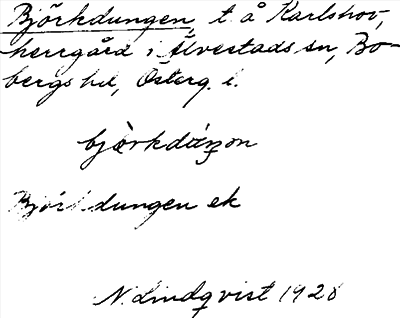 Björkdungen, t å Karlshov,
herrgård i Älvestads sn, Bo-
bergs hd, Österg. l.
bjö̀rkdáŋon
Björkdungen ek
N. Lindqvist 1928